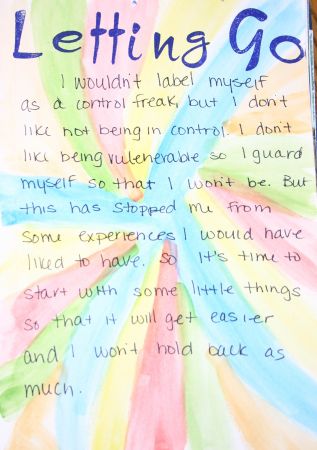 Letting Go
I wouldn't label myself
as a control freak, but I don't
like not being in control. I don't
like being vulenerable so I guard
myself so that I won't be. But
this has stopped me from
some experiences I would have
liked to have. So it's time to
start with some little things
so that it will get easier
and I won't hold back as
much.